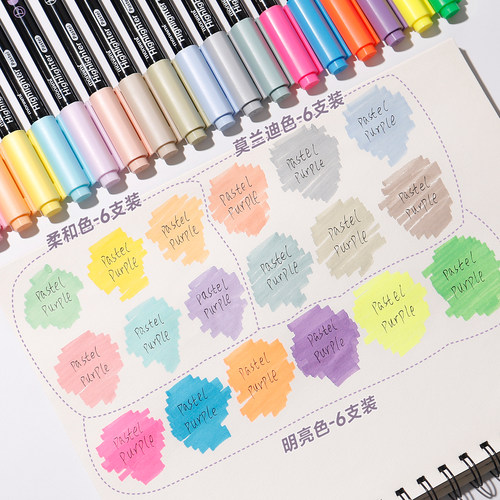 Highlighter
Highlighter
Highlighter
Highlighter
Highlighter
Highlighter
Highlighter
莫兰迪色-6支装
pastel
purple
pastel
purple
pastel
purple
pastel
purple
pastel
purple
pastel
purple
柔和色-6支装
pastel
purple
pastel
purple
pastel
purple
pastel
purple
pastel
purple
pastel
purple
pastel
purple
pastel
purple
pastel
purple
pastel
purple
pastel
purple
pastel
purple
明亮色-6支装